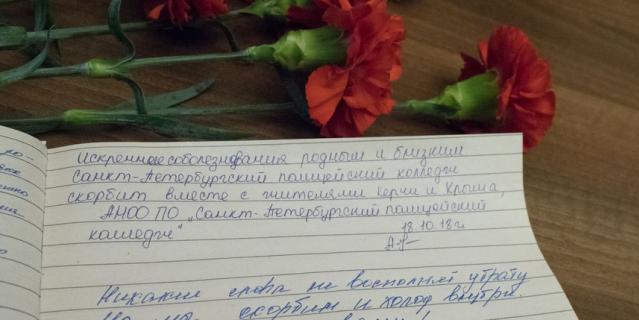 Искренние соболезнования родным и близким
Санкт-Петербургский полицейский колледж
скорбит вместе с жителями Керчи и Крыма,
АНОО ПО „Санкт-Петербургский полицейский
колледж"
18.10.18г
Никакие слова не восполнят утрату
скорбим и холод внутри.